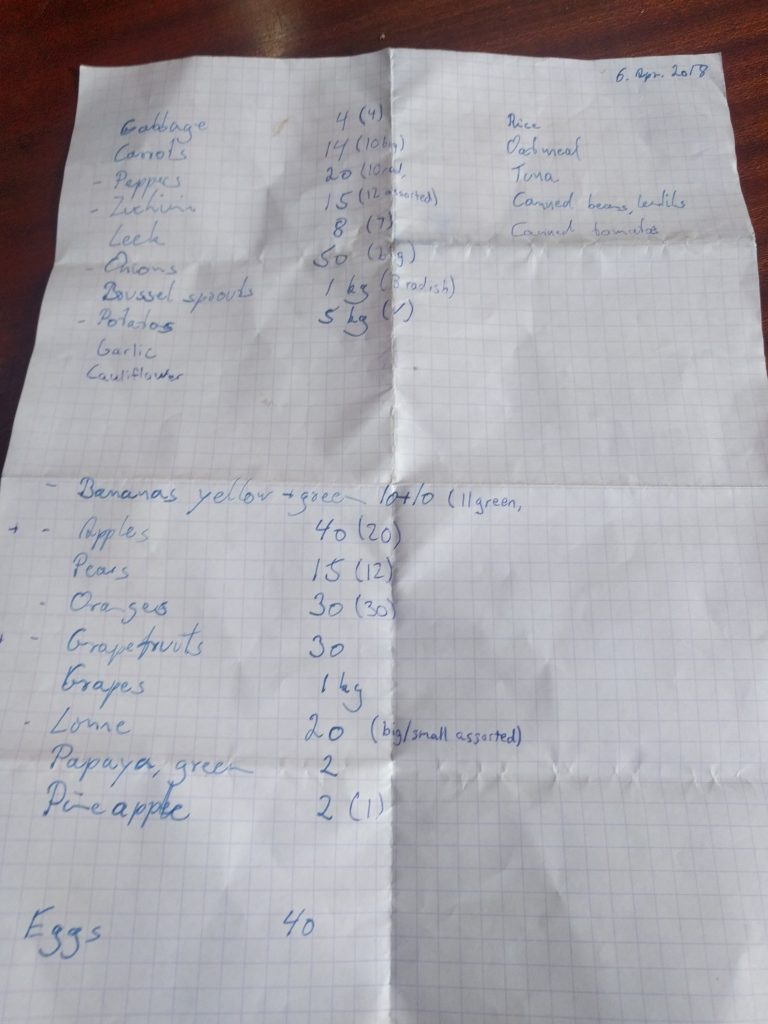 6. Apr. 2018
Cabbage 4 (4)
Carrots 14 (10 big)
- Peppers 20 (10 red,
- Zuchinni 15 (12 assorted)
Leek 8 (7)
- Onions 50 (big)
Brussel sprouts 1 kg (3 radish)
- Potatos 5 kg (✓)
Garlic
Cauliflower
Rice
Oatmeal
Tuna
Canned beans, lentils
Canned tomatos
- Bananas yellow + green 10+10 (11 green,
+ - Apples 40 (20)
Pears 15 (12)
- Oranges 30 (30)
+ - Grapefruits 30
Grapes 1 kg
- 20 (big/small assorted)
Papaya, green 2
Pineapple 2 (1)
Eggs 40